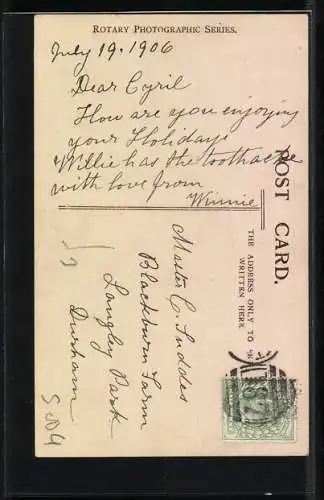 ROTARY PHOTOGRAPHIC SERIES.
July 19. 1906
Dear Cyril
How are you enjoying
your Holidays
Willie has the toothache
with love from
Winnie
POST CARD.
THE ADDRESS ONLY TO BE
WRITTEN HERE.
Master C. Suddes
Blackburn Farm
Langley Park
Durham